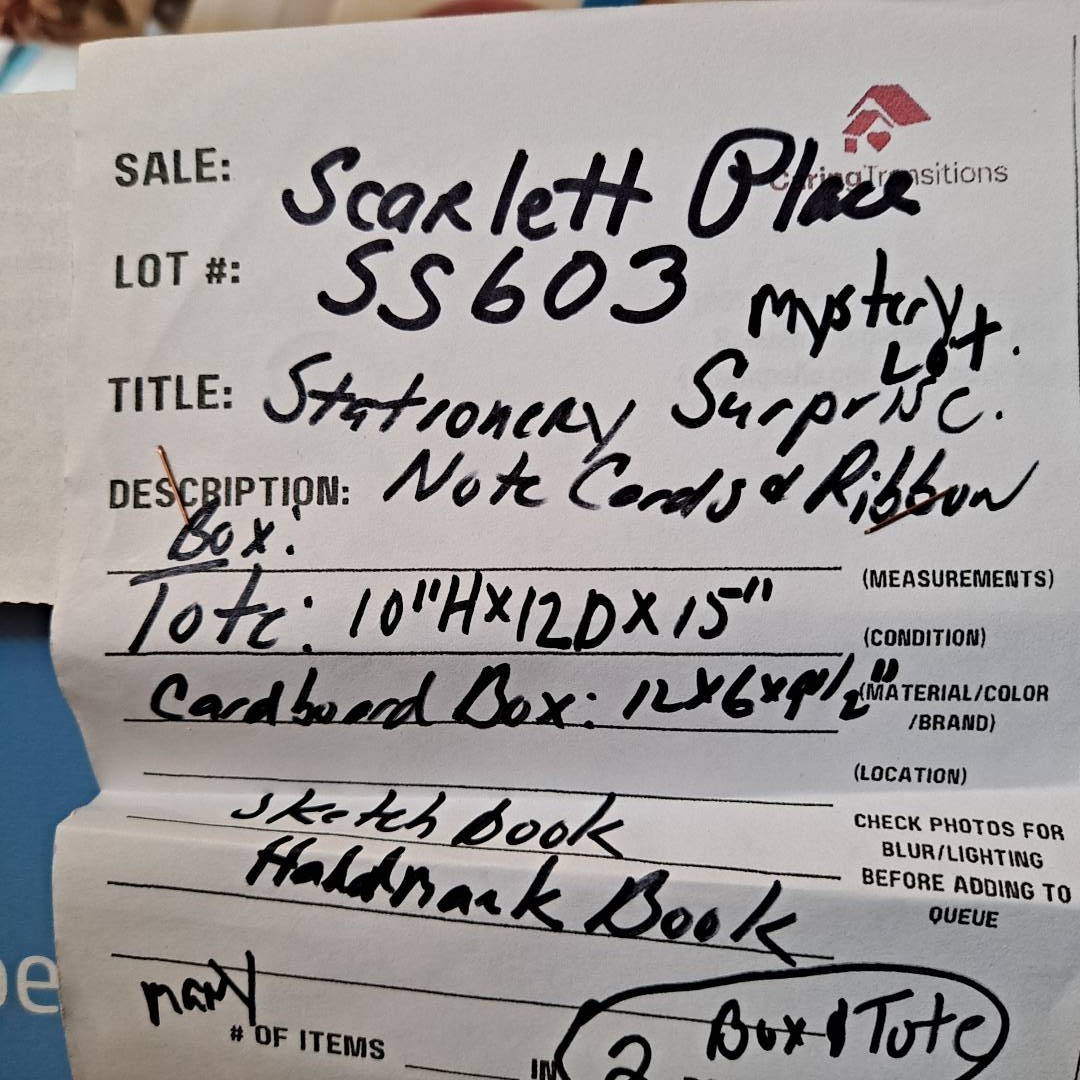 CaringTransitions
SALE: Scarlett Place
LOT #: SS603
Mystery Lot.
TITLE: Stationery Surprise.
DESCRIPTION: Note Cards & Ribbon
Box!
(MEASUREMENTS)
Tote: 10"H X 12D X 15"
(CONDITION)
Cardboard Box: 12 X 6 X 9 1/2"
(MATERIAL/COLOR
/BRAND)
(LOCATION)
Sketch Book
CHECK PHOTOS FOR
BLUR/LIGHTING
BEFORE ADDING TO
QUEUE
Hallmark Book
many
# OF ITEMS
IN
2 Box & Tote